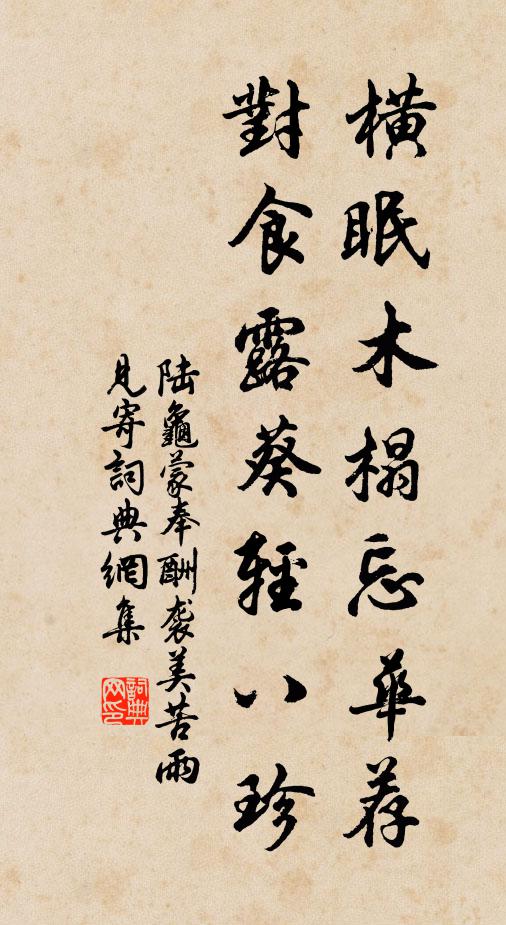 橫眠木榻忘華荐
對食露葵輕八珍
陆龜蒙奉酬袭美苦雨
見寄詞典網集
詞典
网印